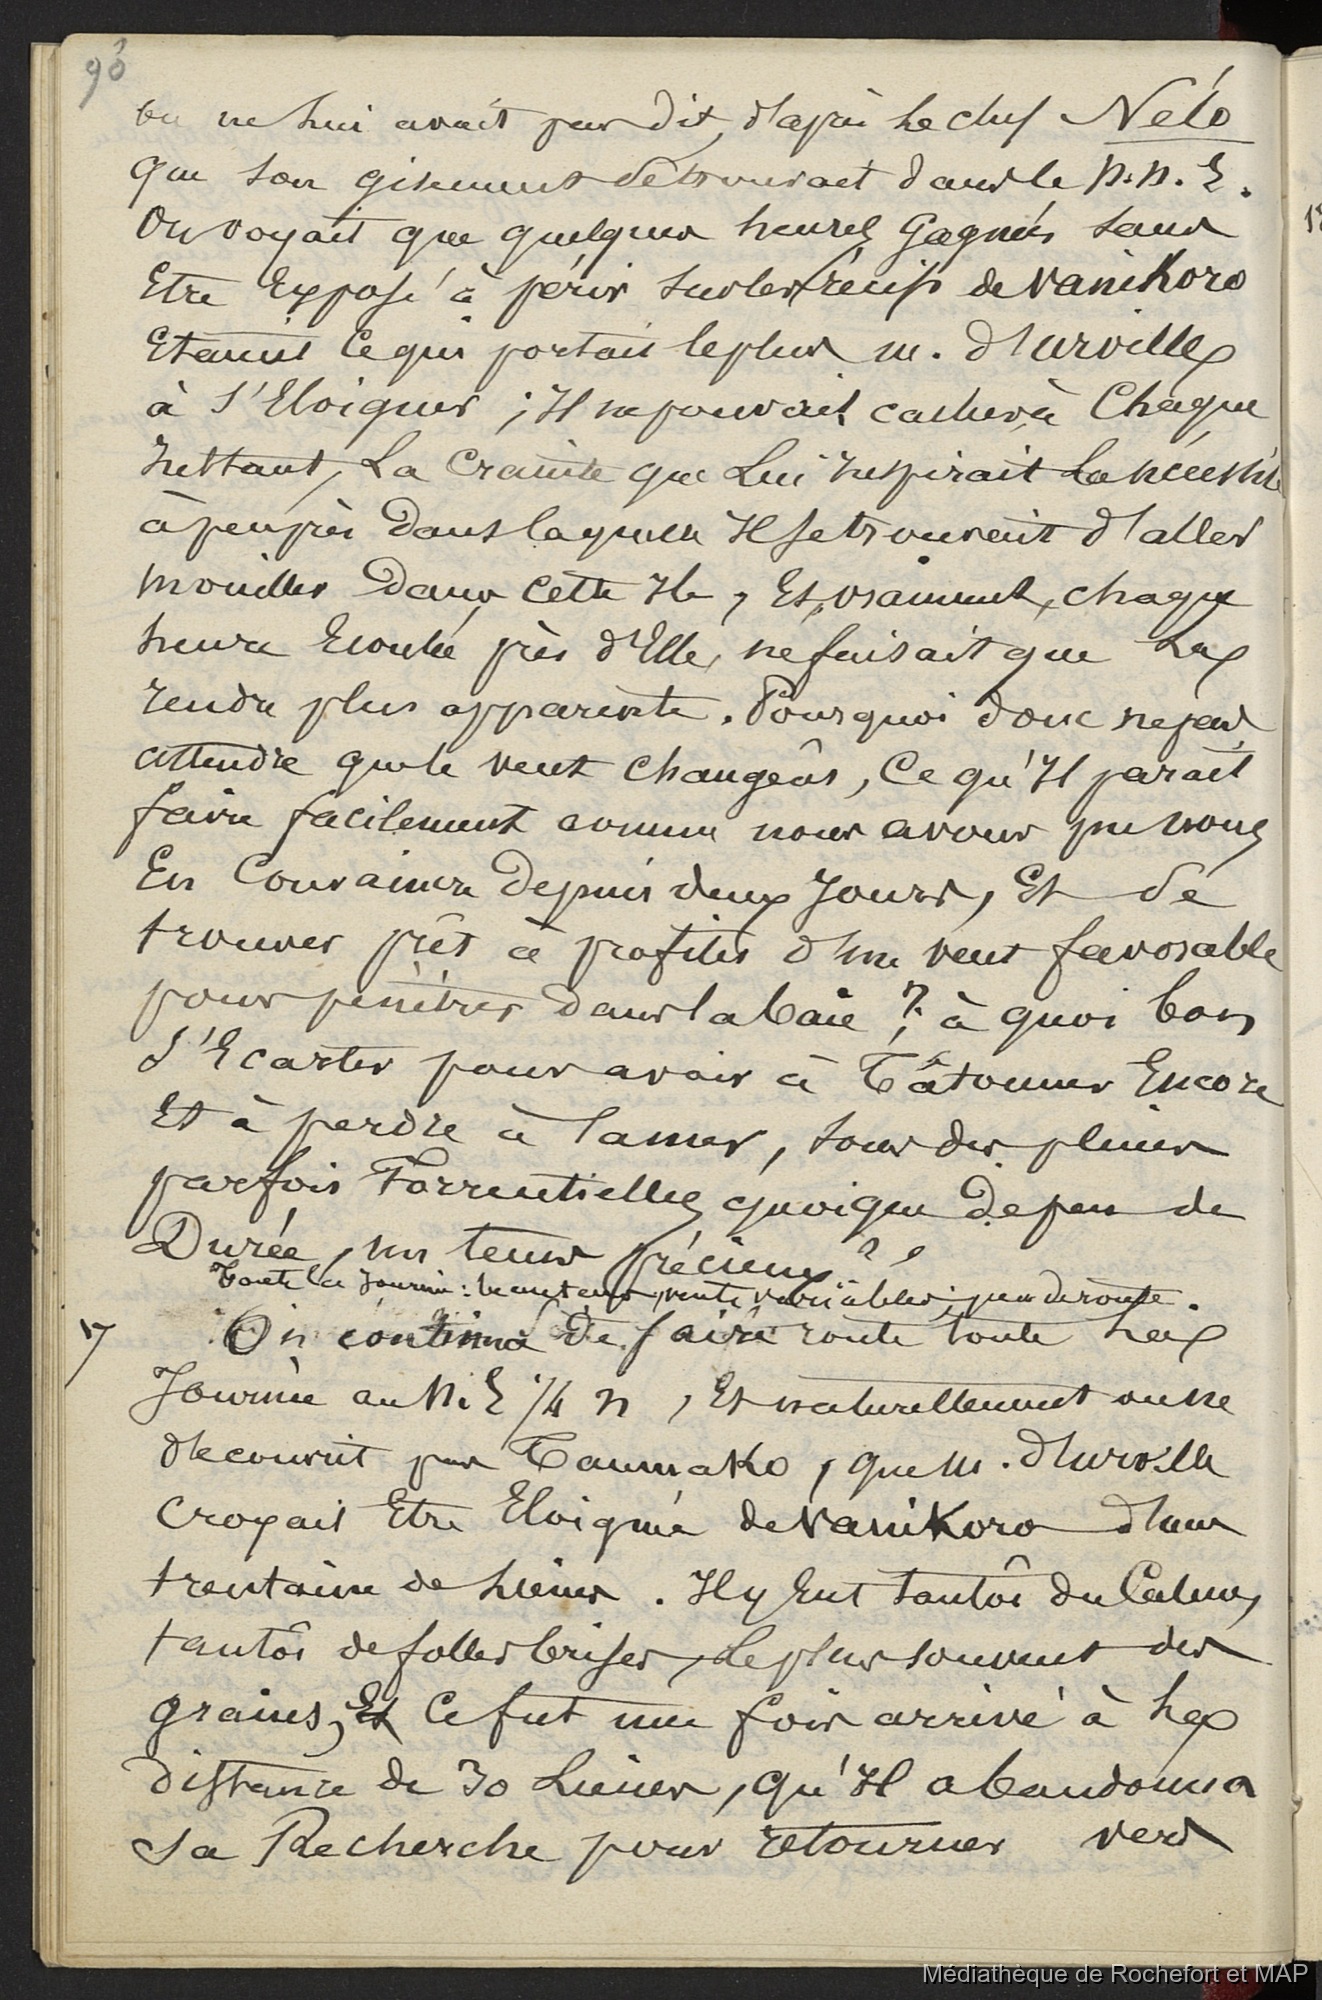 96
on ne lui avait pas dit, d'après le chef Nélo
que son gisement se trouvait dans le N.N.E.
On voyait que quelques heures Gagnées sans
Etre Exposé à périr sur les récifs de Vanikoro
Etaient Ce qui portait le plus M. d'urville
à S'Eloigner ; Il ne pouvait cacher, à Chaque
Instant, La Crainte que Lui Inspirait la nécessité
à peu près Dans laquelle Il se trouvait d'aller
mouiller Dans Cette Ile, Et, vraiment, chaque
heure Ecoulée, près d'Elle, ne faisait que La
rendre plus apparente. Pourquoi donc ne pas
attendre que le vent changeât, Ce qu'Il paraît
faire facilement comme nous avons pu nous
En Convaincre Depuis deux Jours, Et Se
trouver prêt à profiter d'un vent favorable
pour pénétrer dans la baie ? à quoi bon
S'Ecarter pour avoir à Tâtonner Encore
Et à perdre à la mer, sous des pluies
parfois Torrentielles quoique De peu de
Durée, un tems précieux ?
Toute la Journée : beau tems, vents variables ; peu de route.
17 On continua De faire route toute la
Journée au N.E 1/4 N, Et naturellement on ne
découvrit pas Taumako, que M. d'urville
Croyait Etre Eloignée de Vanikoro d'une
trentaine de Lieues. Il y Eut tantôt du Calme,
tantôt de folles brises, le plus souvent des
grains, Et Ce fut une fois arrivé à La
Distance de 30 Lieues, qu'Il abandonna
Sa Recherche pour retourner vers
Médiathèque de Rochefort et MAP